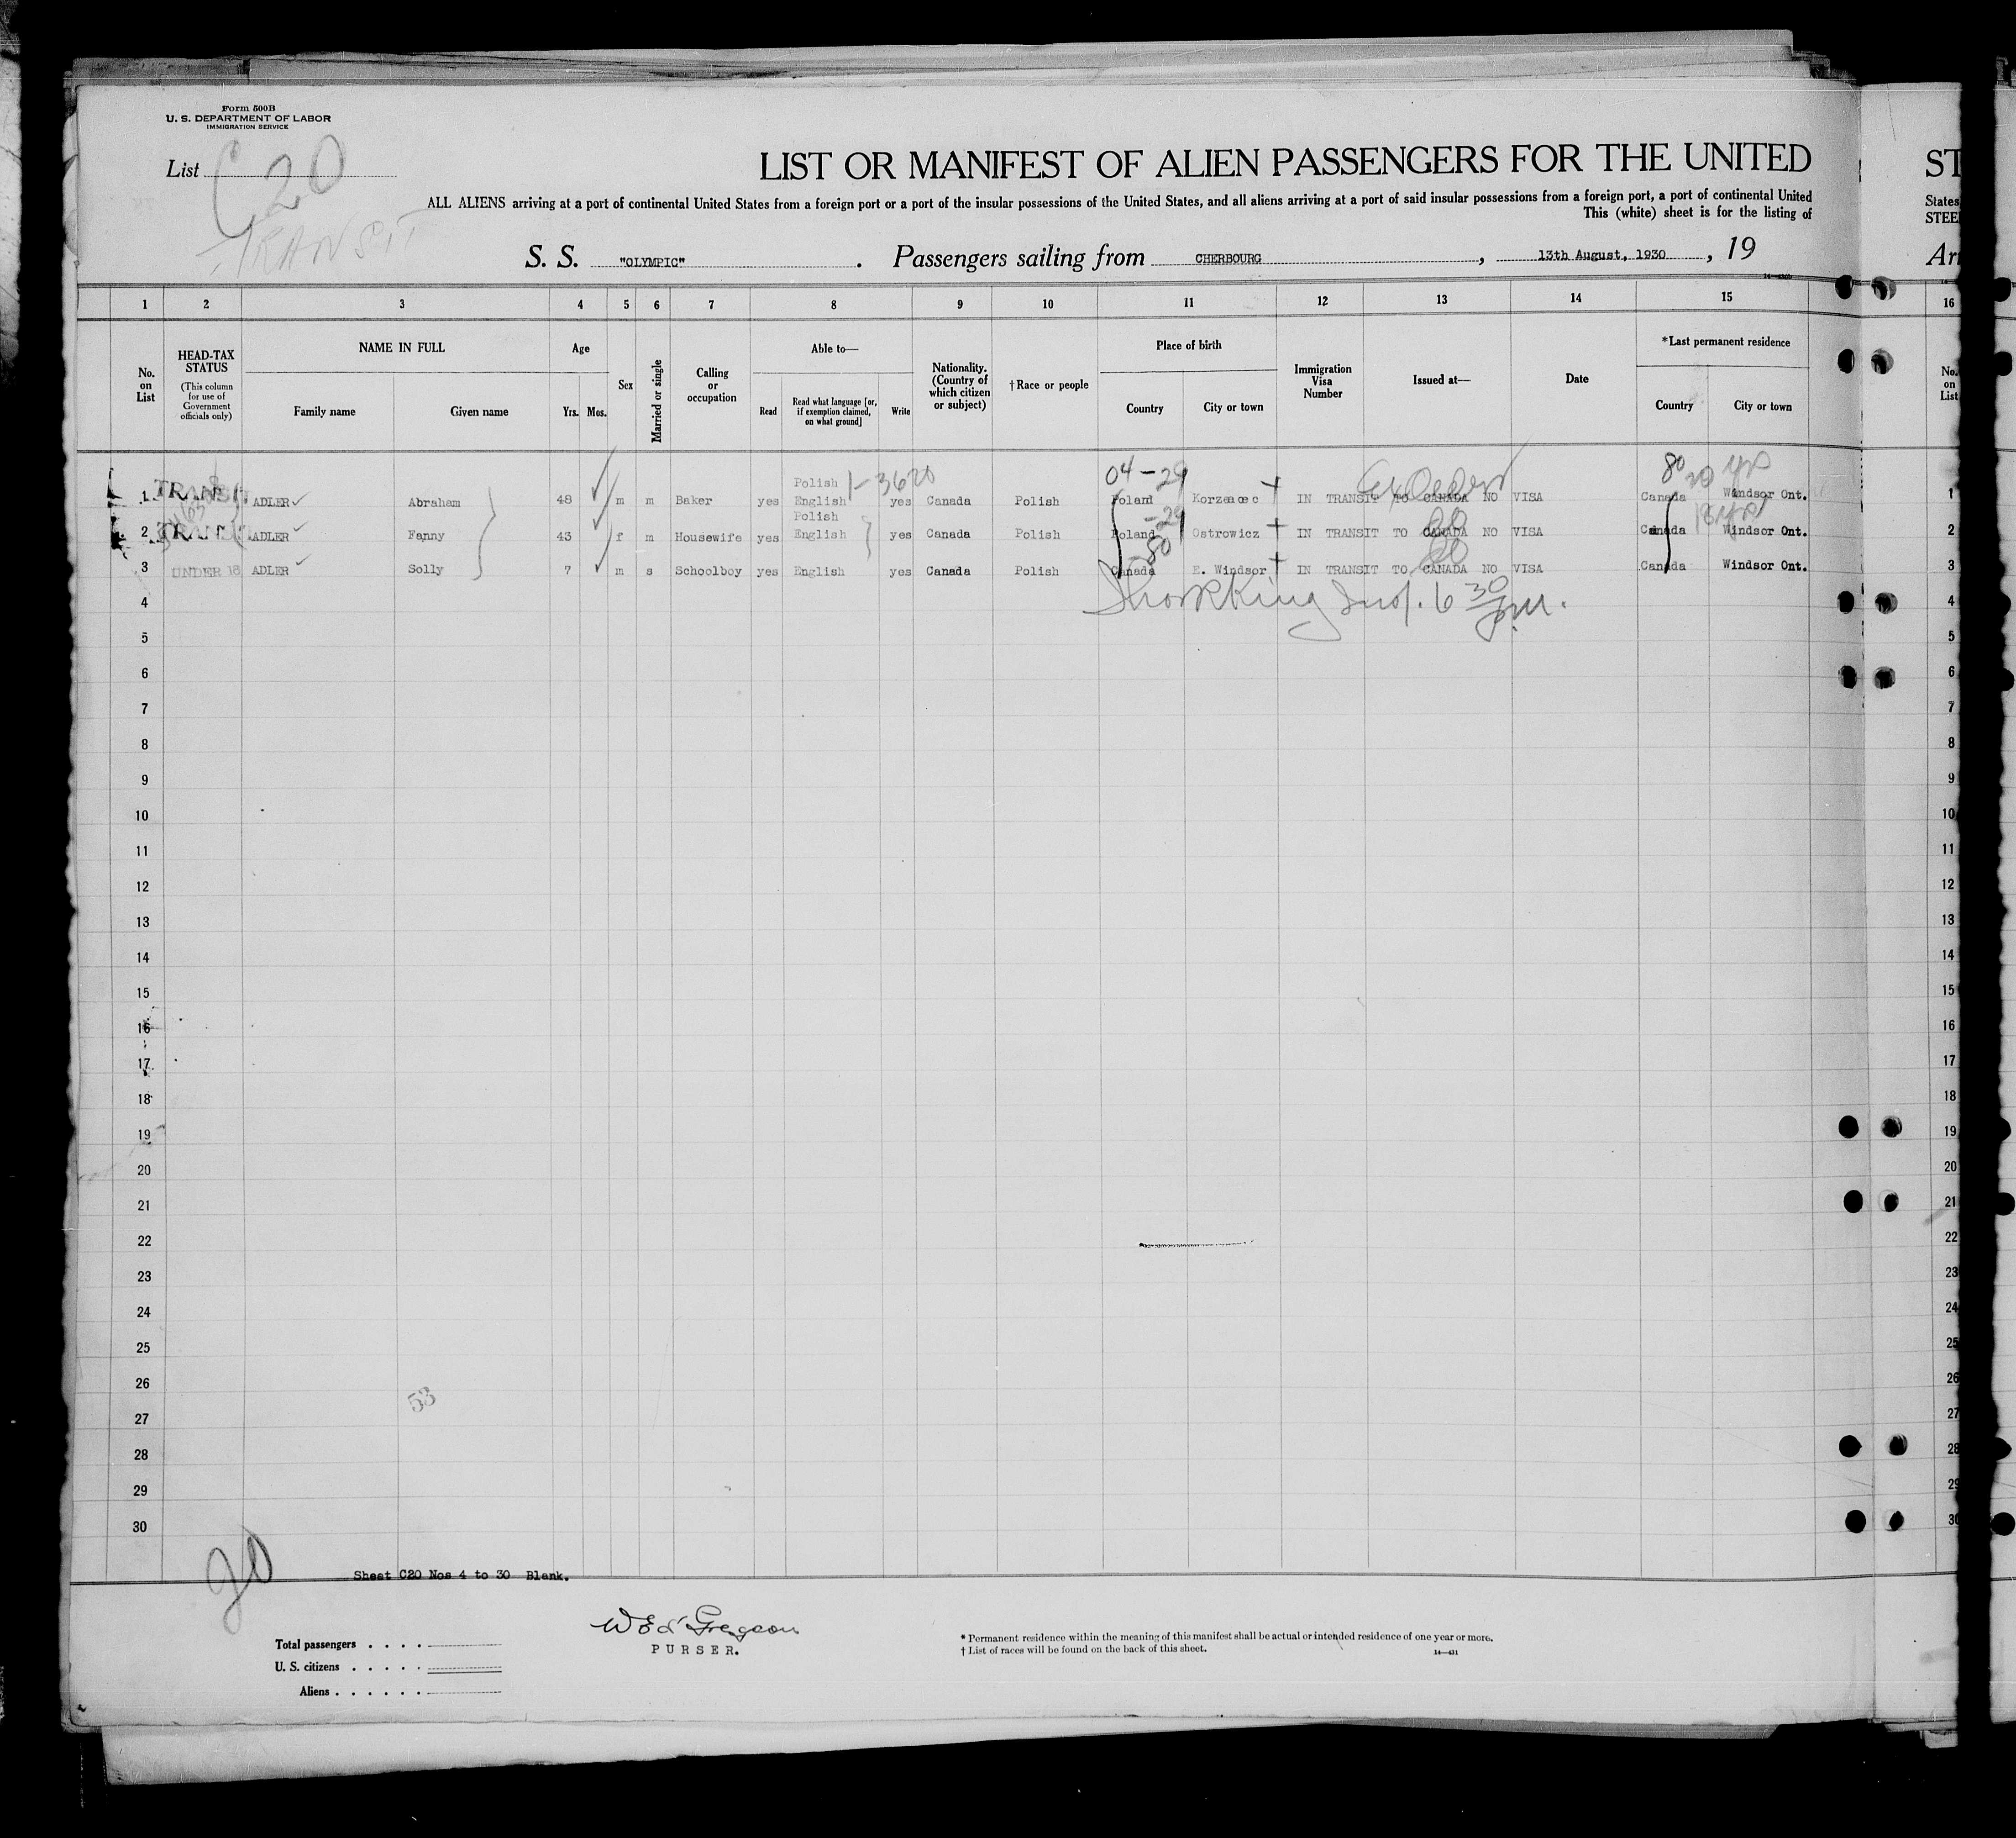 Form 500B
U. S. DEPARTMENT OF LABOR
IMMIGRATION SERVICE
List C20
TRANSIT
LIST OR MANIFEST OF ALIEN PASSENGERS FOR THE UNITED
ALL ALIENS arriving at a port of continental United States from a foreign port or a port of the insular possessions of the United States, and all aliens arriving at a port of said insular possessions from a foreign port, a port of continental United
This (white) sheet is for the listing of
S. S. "OLYMPIC". Passengers sailing from CHERBOURG, 13th August, 1930, 19
ST
States
STEE
Ar
1 2 3 4 5 6 7 8 9 10 11 12 13 14 15 16
No. on List
HEAD-TAX STATUS
(This column for use of Government officials only)
NAME IN FULL
Family name Given name
Age
Yrs. Mos.
Sex
Married or single
Calling or occupation
Able to—
Read
Read what language [or, if exemption claimed, on what ground]
Write
Nationality. (Country of which citizen or subject)
†Race or people
Place of birth
Country City or town
Immigration Visa Number
Issued at—
Date
*Last permanent residence
Country City or town
No. on List
04-29 80 20 yrs
1 TRANSIT ADLER Abraham 48 m m Baker yes Polish English 1-3620 yes Canada Polish Poland IN TRANSIT TO CANADA NO VISA Canada Windsor Ont. 1
-29
2 TRANSIT ADLER Fanny 43 f m Housewife yes Polish English yes Canada Polish Poland Ostrowicz IN TRANSIT TO CANADA NO VISA Canada Windsor Ont. 2
-80
3 UNDER 16 ADLER Solly 7 m s Schoolboy yes English yes Canada Polish Canada E. Windsor IN TRANSIT TO CANADA NO VISA Canada Windsor Ont. 3
4 King Insp. 6 30 pm. 4
5 5
6 6
7 7
8 8
9 9
10 10
11 11
12 12
13 13
14 14
15 15
16 16
17 17
18 18
19 19
20 20
21 21
22 22
23 23
24 24
25 25
26 53 26
27 27
28 28
29 29
30 30
20
Sheet C20 Nos 4 to 30 Blank.
Total passengers
U. S. citizens
Aliens
Gregson
PURSER.
* Permanent residence within the meaning of this manifest shall be actual or intended residence of one year or more.
† List of races will be found on the back of this sheet.
14—431